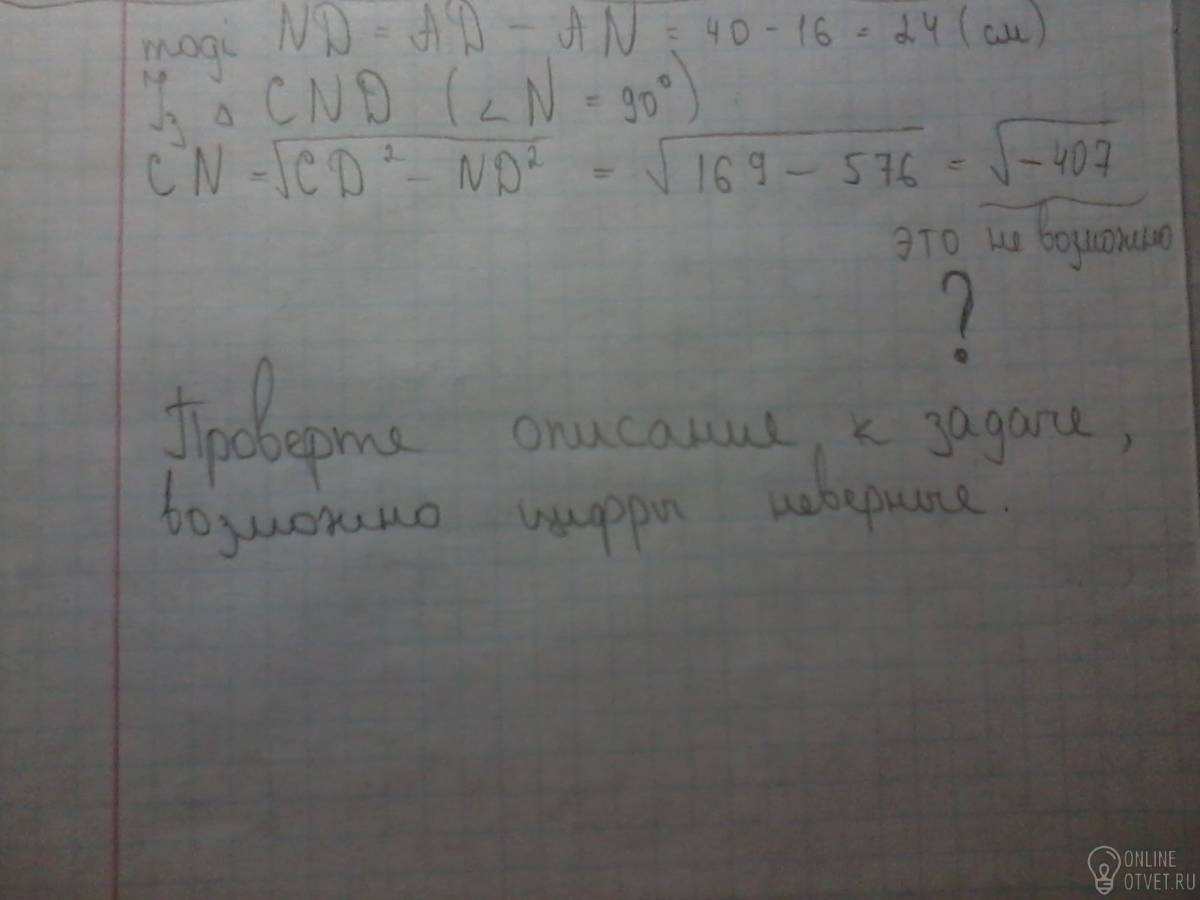 тоді ND = AD - AN = 40 - 16 = 24 (см)
Із △ CND (∠N = 90°)
CN = √CD² - ND² = √169 - 576 = √-407
это не возможно
?
Проверте описание к задаче,
возможно цифры неверные.
ONLINE
OTVET.RU